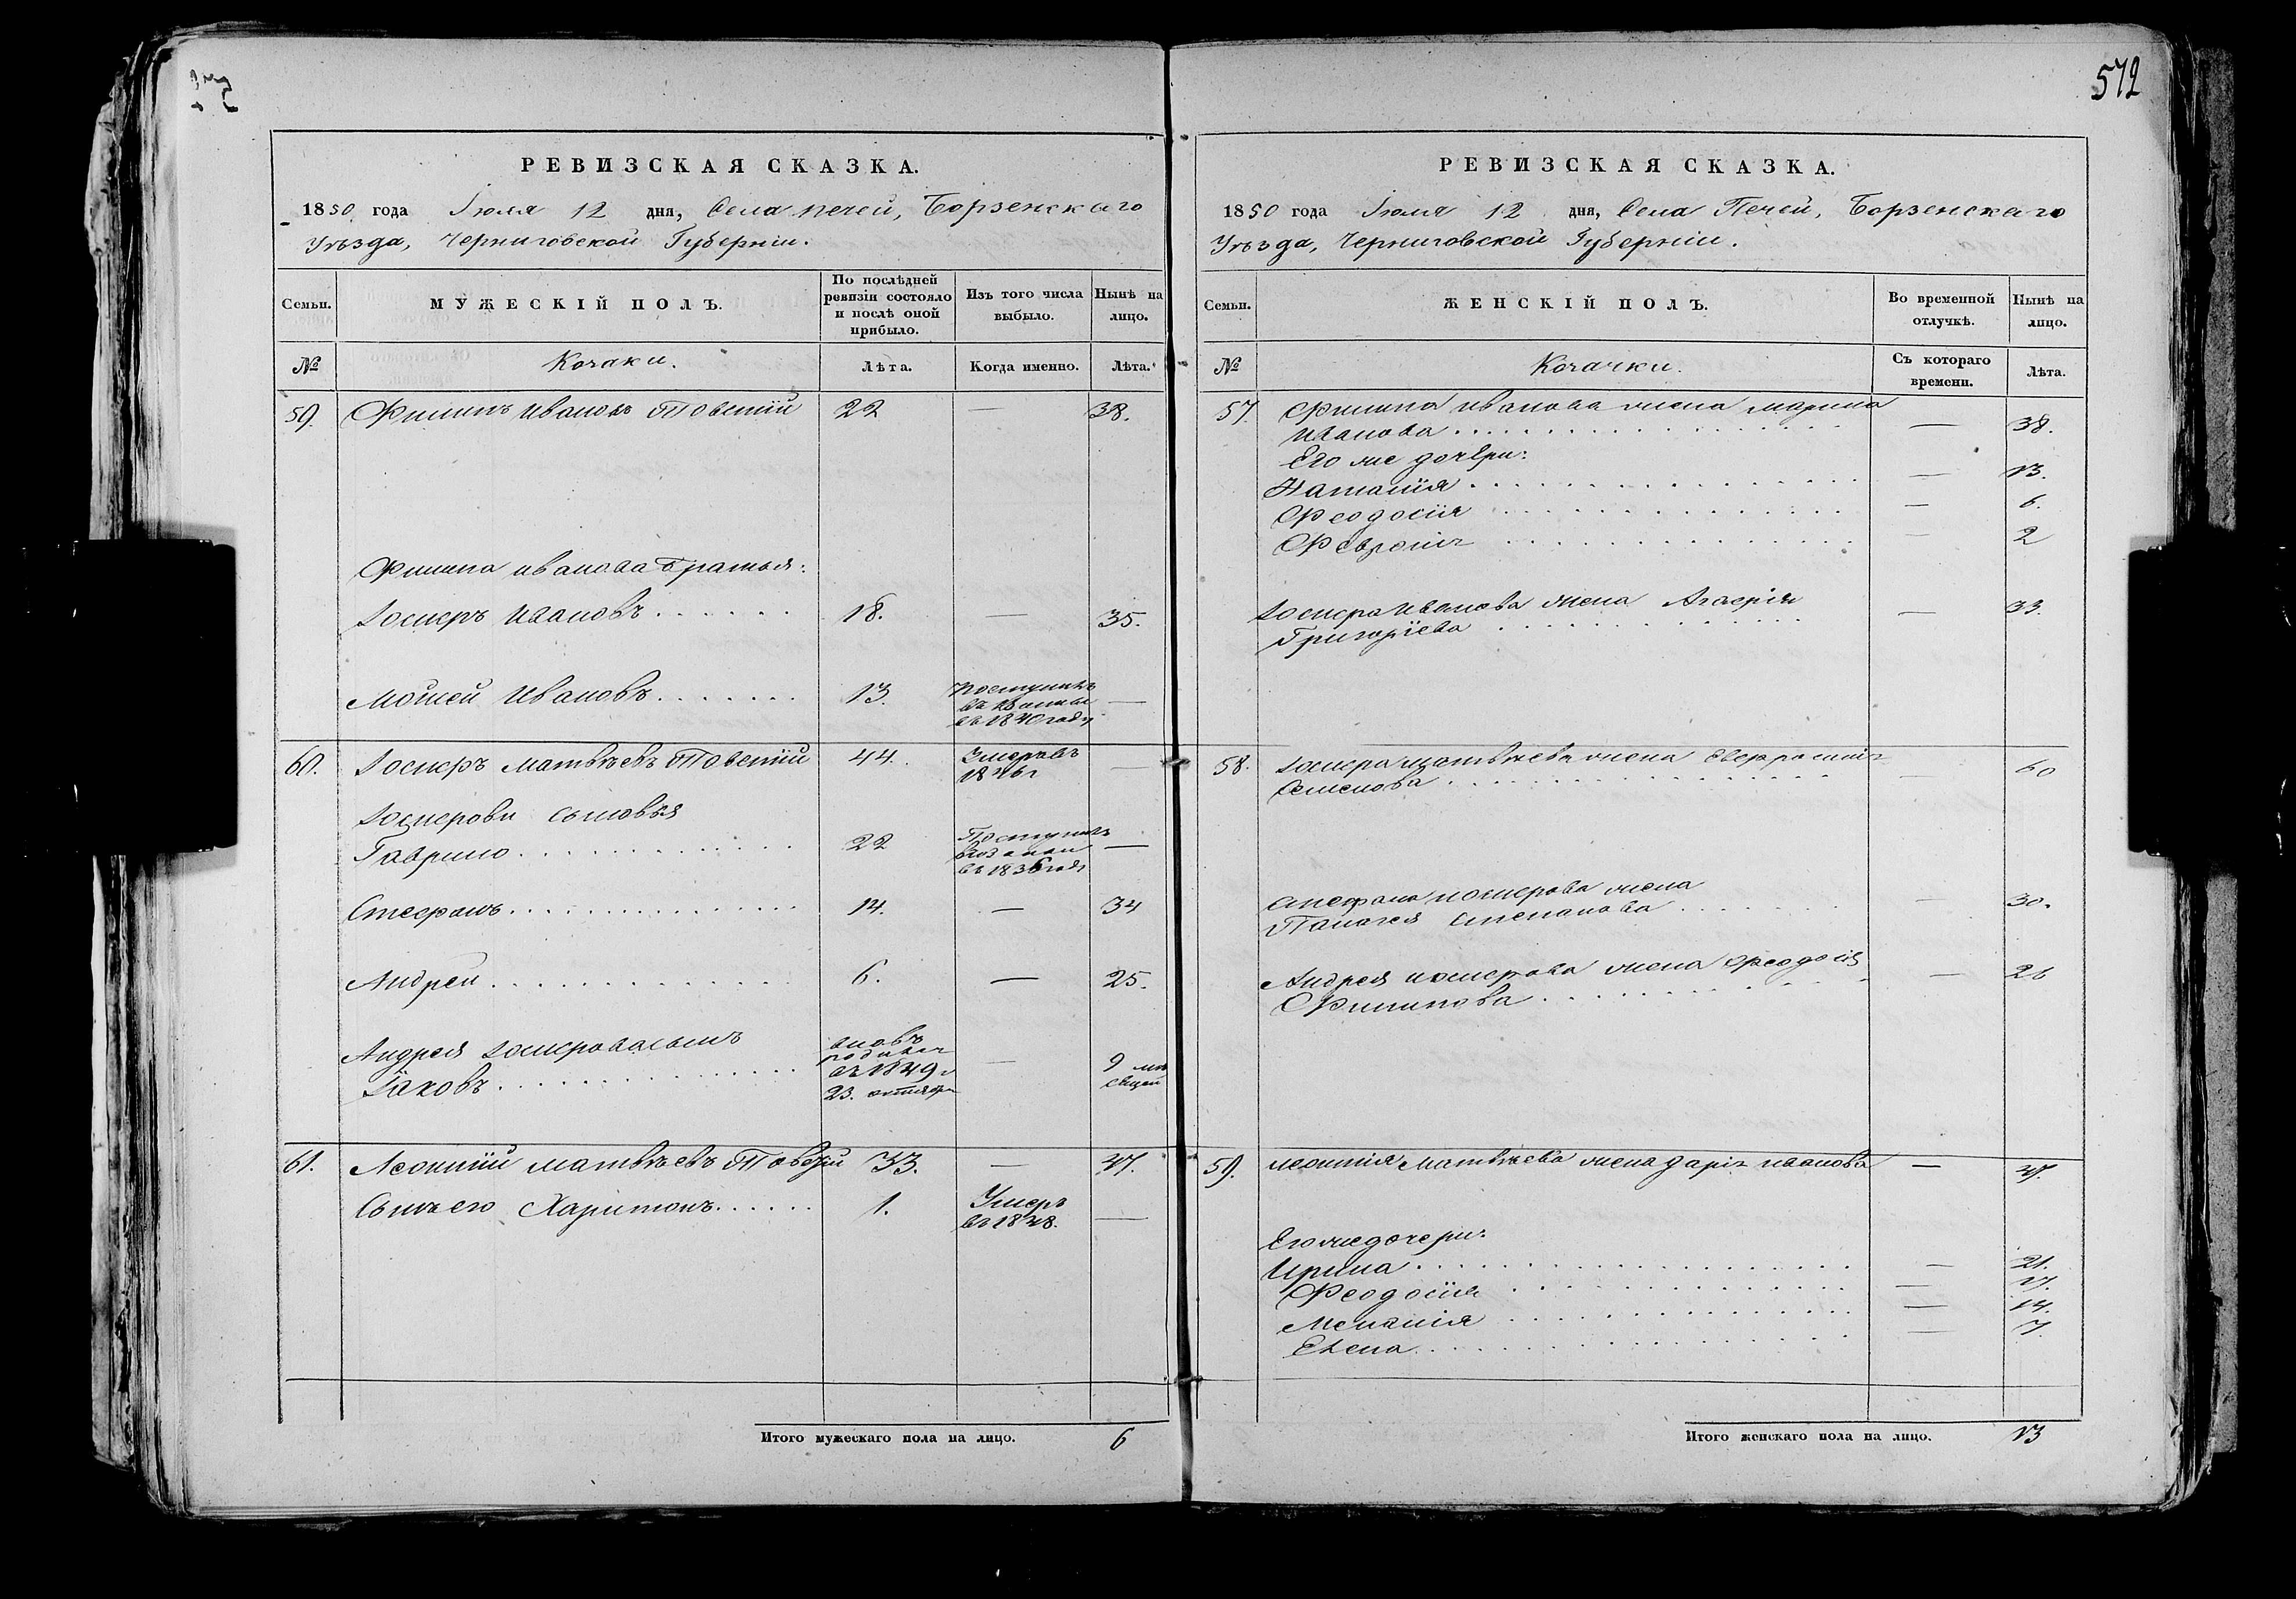 572
РЕВИЗСКАЯ СКАЗКА.
1850 года Іюля 12 дня, Села Печей, Борзенскаго
Уѣзда, Черниговской Губерніи.
Семьи.
МУЖЕСКІЙ ПОЛЪ.
По послѣдней
ревизіи состояло
и послѣ оной
прибыло.
Изъ того числа
выбыло.
Нынѣ на
лицо.
№
Козаки.
Лѣта.
Когда именно.
Лѣта.
59. Филипъ Ивановъ 22 — 38.
Филипа Иванова братья:
Іосифъ Ивановъ . . . . . . 18. — 35.
Мойсей Ивановъ . . . . . . . 13. Поступилъ
—
въ 1840 году
60. Іосифъ Матвѣевъ 44. Умеръ въ
1846 г —
Іосифови сыновья
Гаврило . . . . . . . . . . . . 22 Поступилъ
—
въ 1836 годѣ
Стефанъ . . . . . . . . . . . . . 14. — 34
Андрей . . . . . . . . . . . . . . 6. — 25.
Андрея Іосифова сынъ
Іаковъ . . . . . . . . . . . . . .
вновь
родился
въ 1849 г
23. октября
—
9 мѣ
сяцей
61. Леонтій Матвѣевъ 33. — 47.
Сынъ его Харитонъ . . . . . . 1. Умеръ
въ 1838. —
Итого мужескаго пола на лицо. 6
РЕВИЗСКАЯ СКАЗКА.
1850 года Іюля 12 дня, Села Печей, Борзенскаго
Уѣзда, Черниговской Губерніи.
Семьи.
ЖЕНСКІЙ ПОЛЪ.
Во временной
отлучкѣ.
Нынѣ на
лицо.
№
Козачки.
Съ котораго
времени.
Лѣта.
57. Филипа Иванова жена Марина
Иванова . . . . . . . . . . . . — 38.
Его же дочери:
Наталія . . . . . . . . . . . . — 13.
Феодосія . . . . . . . . . . . . — 6.
Февронія . . . . . . . . . . . . — 2
Іосифа Иванова жена
Григоріева . . . . . . . . . . . . — 33.
58. Іосифа Матвѣева жена Евфросинія
Семенова . . . . . . . . . . . . — 60
Стефана Иосифова жена
Палагея Степанова . . . . . . — 30.
Андрея Иосифова жена Феодосія
Филипова . . . . . . . . . . . . — 26
59. Леонтія Матвѣева жена Дарія Иванова — 47.
Его же дочери:
Ирина . . . . . . . . . . . . — 21.
Феодосія . . . . . . . . . . . . — 17.
Меланія . . . . . . . . . . . . — 14.
Елена . . . . . . . . . . . . — 7.
Итого женскаго пола на лицо. 13